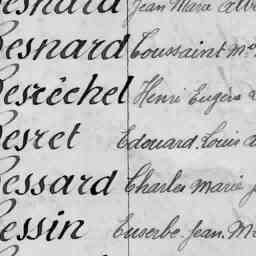 Jean Marie
Besnard Toussaint M
Besréchel Henri Eugène
Besret Edouard Louis
Bessard Charles Marie
Bessin Euserbe Jean M